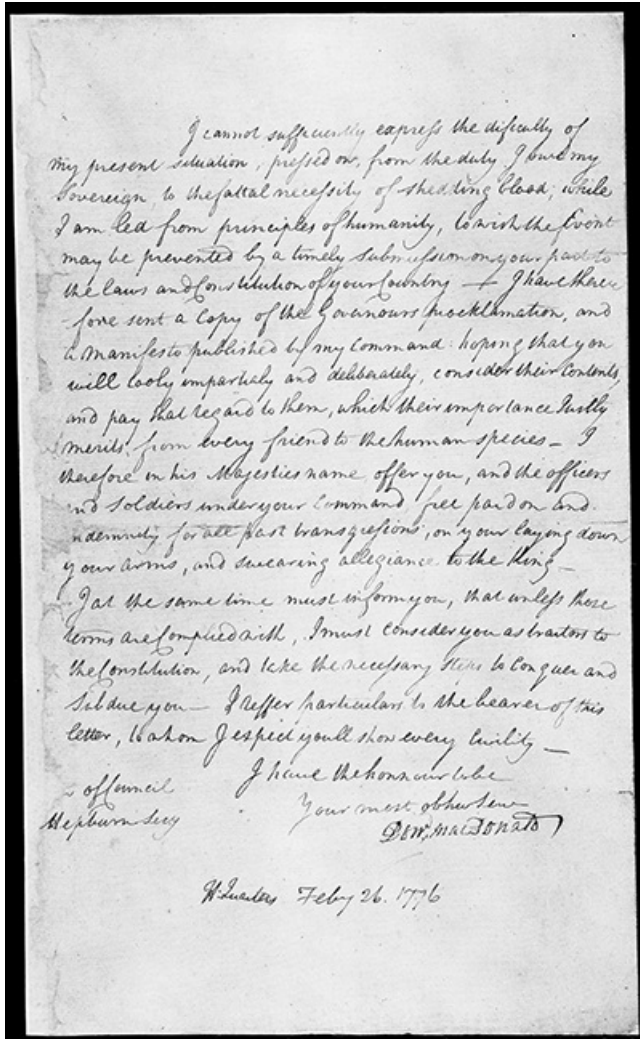 I cannot sufficiently express the dificulty of
my present situation, pressed on, from the duty I owe my
Sovereign, to the fattal necessity of shedding blood; while
I am led from principles of humanity, to wish the Event
may be prevented by a timely submission on your part to
the laws and Constitution of your Country — I have there
fore sent a Copy of the Govenours procklamation, and
a manifesto published by my command: hoping that you
will cooly impartialy and deliberately, consider their contents,
and pay that regard to them, which their importance Justly
merits, from every friend to the human species — I
therefore in his Majesties name, offer you, and the officers
and soldiers under your Command, free pardon and
indemnity for all past transgresions, on your laying down
your arms, and swearing allegiance to the King —
I at the same time must inform you, that unless those
terms are Complied with, I must consider you as traitors to
the Constitution, and take the necessary steps to Conquer and
Subdue you — I reffer particulars to the bearer of this
letter, to whom I expect youll show every Civility —
I have the honnour to be
of Council
Your most obt hum Serv
Hepburn Secy
Don. MacDonald
H: Quarters Feby 26. 1776